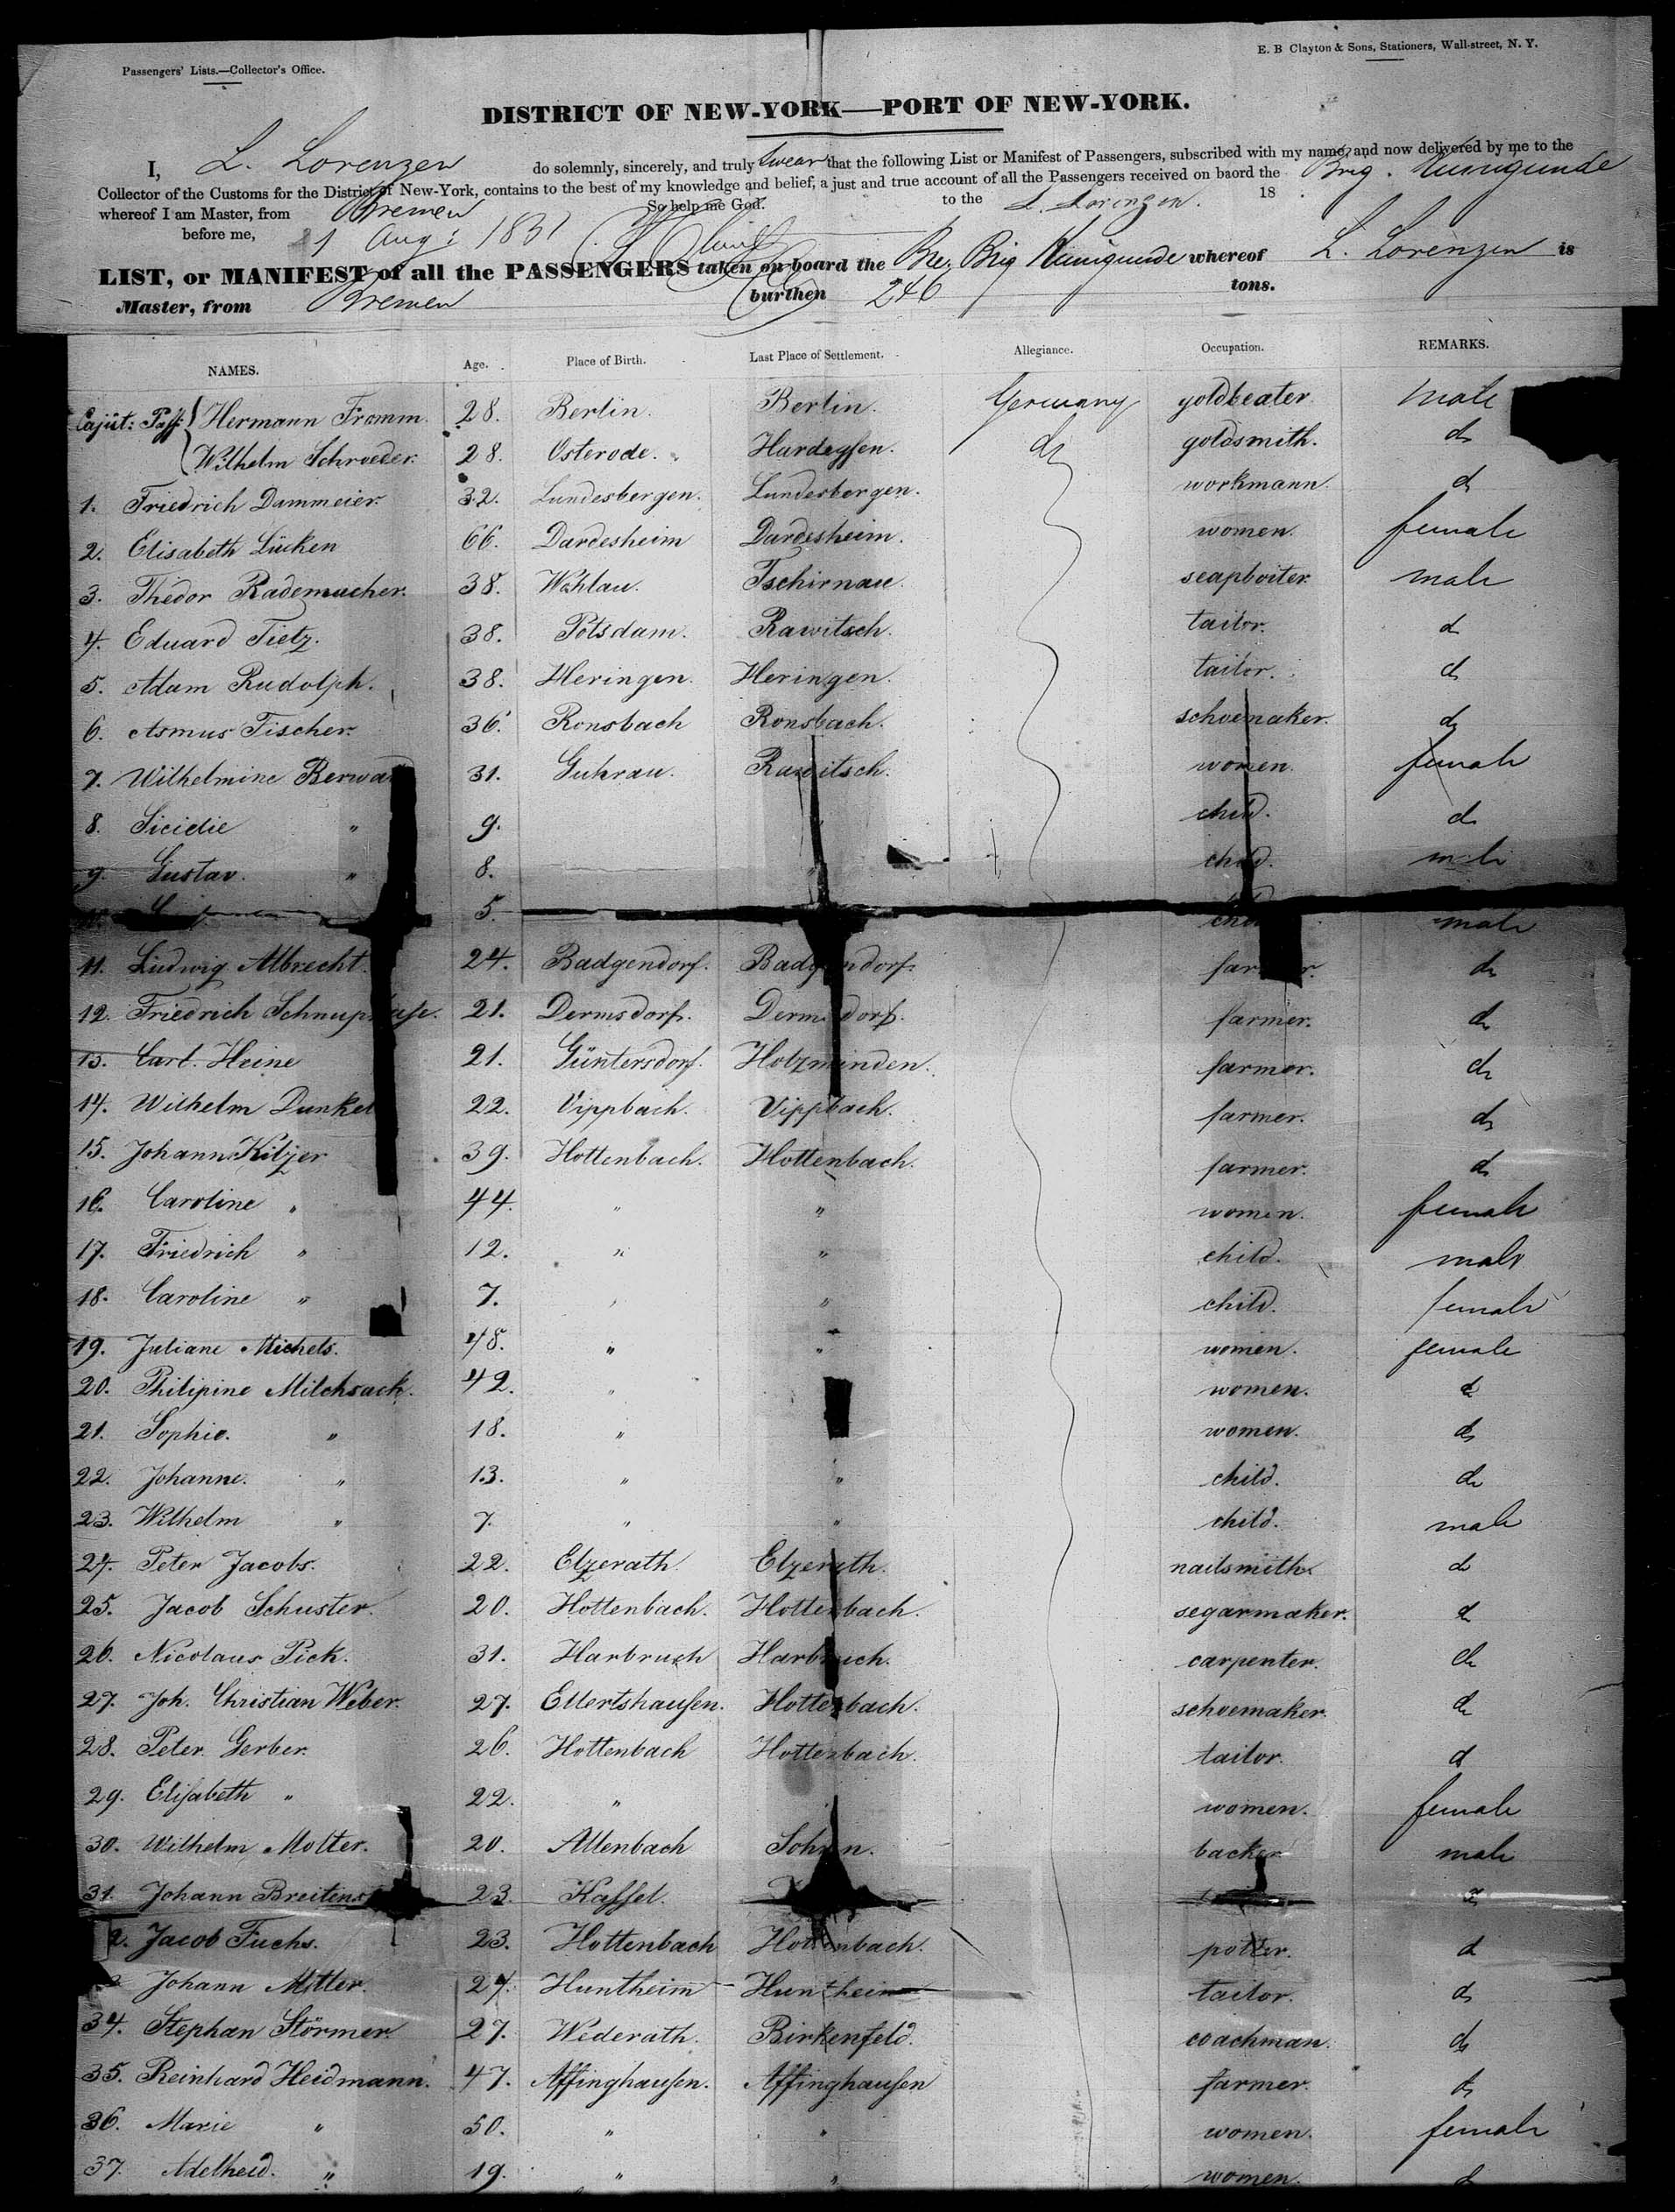 Passengers' Lists.—Collector's Office.
E. B Clayton & Sons, Stationers, Wall-street, N. Y.
DISTRICT OF NEW-YORK—PORT OF NEW-YORK.
I, L. Lorenzen do solemnly, sincerely, and truly swear that the following List or Manifest of Passengers, subscribed with my name, and now delivered by me to the
Collector of the Customs for the District of New-York, contains to the best of my knowledge and belief, a just and true account of all the Passengers received on baord the Brig. Kunigunde
whereof I am Master, from Bremen So help me God. to the L. Lorenzen. 18
before me, 1 Aug: 1851
LIST, or MANIFEST of all the PASSENGERS taken on board the Bre. Brig Kunigunde whereof L. Lorenzen is
Master, from Bremen burthen 246 tons.
NAMES. Age. Place of Birth. Last Place of Settlement. Allegiance. Occupation. REMARKS.
Cajüt: Pass: Hermann Fromm. 28. Berlin. Berlin. Germany goldbeater male
Wilhelm Schroeder. 28. Osterode. Hardegsen. do goldsmith. do
1. Friedrich Dammeier. 32. Landesbergen. Landesbergen. workmann do
2. Elisabeth Lücken 66. Dardesheim Dardesheim. women. female
3. Thedor Rademacher. 38. Wohlau. Tschirnau. seapboiter. male
4. Eduard Tietz. 38. Potsdam. Rawitsch. tailor. do
5. Adam Rudolph. 38. Heringen. Heringen. tailor. do
6. Asmus Fischer. 36. Ronsbach Ronsbach. schoemaker. do
7. Wilhelmine 31. Guhrau. Rawitsch. women. female
8. " 9. child. do
9. Gustav. " 8. child. male
5. child male
11. Ludwig Albrecht. 24. Badgendorf. Badgendorf. farmer. do
12. Friedrich Schnuphase. 21. Dermsdorf. Dermsdorf. farmer. do
13. Carl. Heine 21. Güntersdorf. Holzminden. farmer. do
14. Wilhelm Dunkel 22. Vippbach. Vippbach. farmer. do
15. Johann Kitzer 39. Hottenbach. Hottenbach. farmer. do
16. Caroline " 44. " " women. female
17. Friedrich " 12. " " child. male
18. Caroline " 7. " " child. female
19. Juliane Michels. 48. " " women. female
20. Philipine Milchsack. 42. " women. do
21. Sophie. " 18. " women. do
22. Johanne. " 13. " " child. do
23. Wilhelm " 7. " " child. male
24. Peter Jacobs. 22. Elzerath. Elzerath. nailsmith. do
25. Jacob Schuster. 20. Hottenbach. Hottenbach. segarmaker. do
26. Nicolaus Pick. 31. Harbruch Harbruch. carpenter. do
27. Joh. Christian Weber. 27. Ellertshausen. Hottenbach. schoemaker. do
28. Peter. Gerber. 26. Hottenbach Hottenbach. tailor. do
29. Elisabeth " 22. " women. female
30. Wilhelm Molter. 20. Allenbach Sohren. backer male
31. Johann 23. Kassel.
2. Jacob Fuchs. 23. Hottenbach Hottenbach. potter. do
Johann Mitler. 24. Huntheim Huntheim tailor. do
34. Stephan Störmer 27. Wederath. Birkenfeld. coachman. do
35. Reinhard Heidmann. 47. Affinghausen. Affinghausen farmer. do
36. Marie " 50. " " women. female
37. Adelheid. " 19. " " women. do